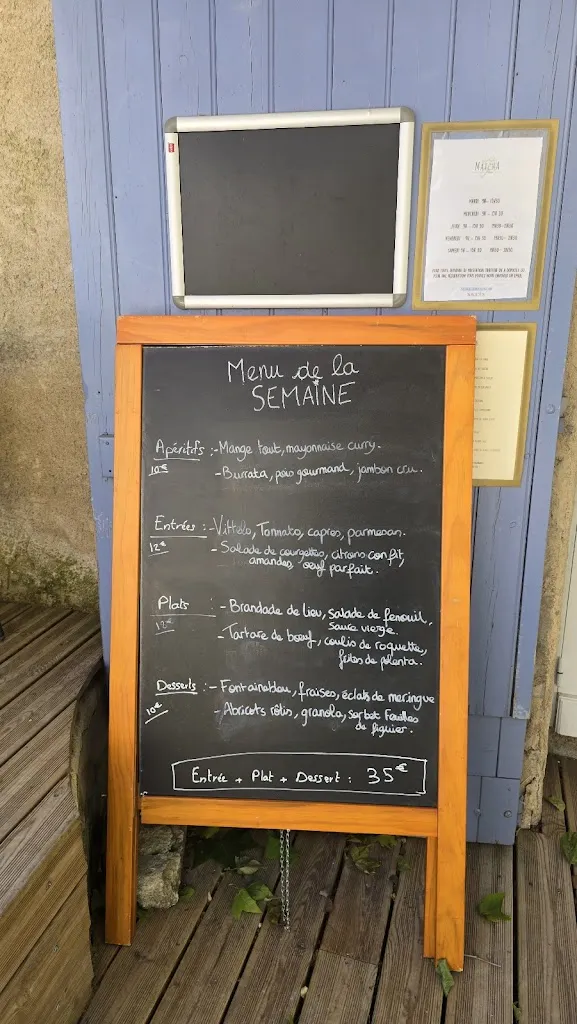 MATCHA
Menu de la
SEMAINE
Apéritifs :-Mange tout, mayonnaise curry.
10€ -Burrata, pois gourmand, jambon cru.
Entrées :-Vittelo, Tonnato, capres, parmesan.
12€ -Salade de courgettes, citrons confit,
amandes, oeuf parfait.
Plats :-Brandade de lieu, salade de fenouil,
sauce vierge.
-Tartare de boeuf, coulis de roquette,
frites de polenta.
Desserts :-Fontainebleau, fraises, éclats de meringue
10€ -Abricots rôtis, granola, sorbet feuilles
de figuier.
Entrée + Plat + Dessert : 35€